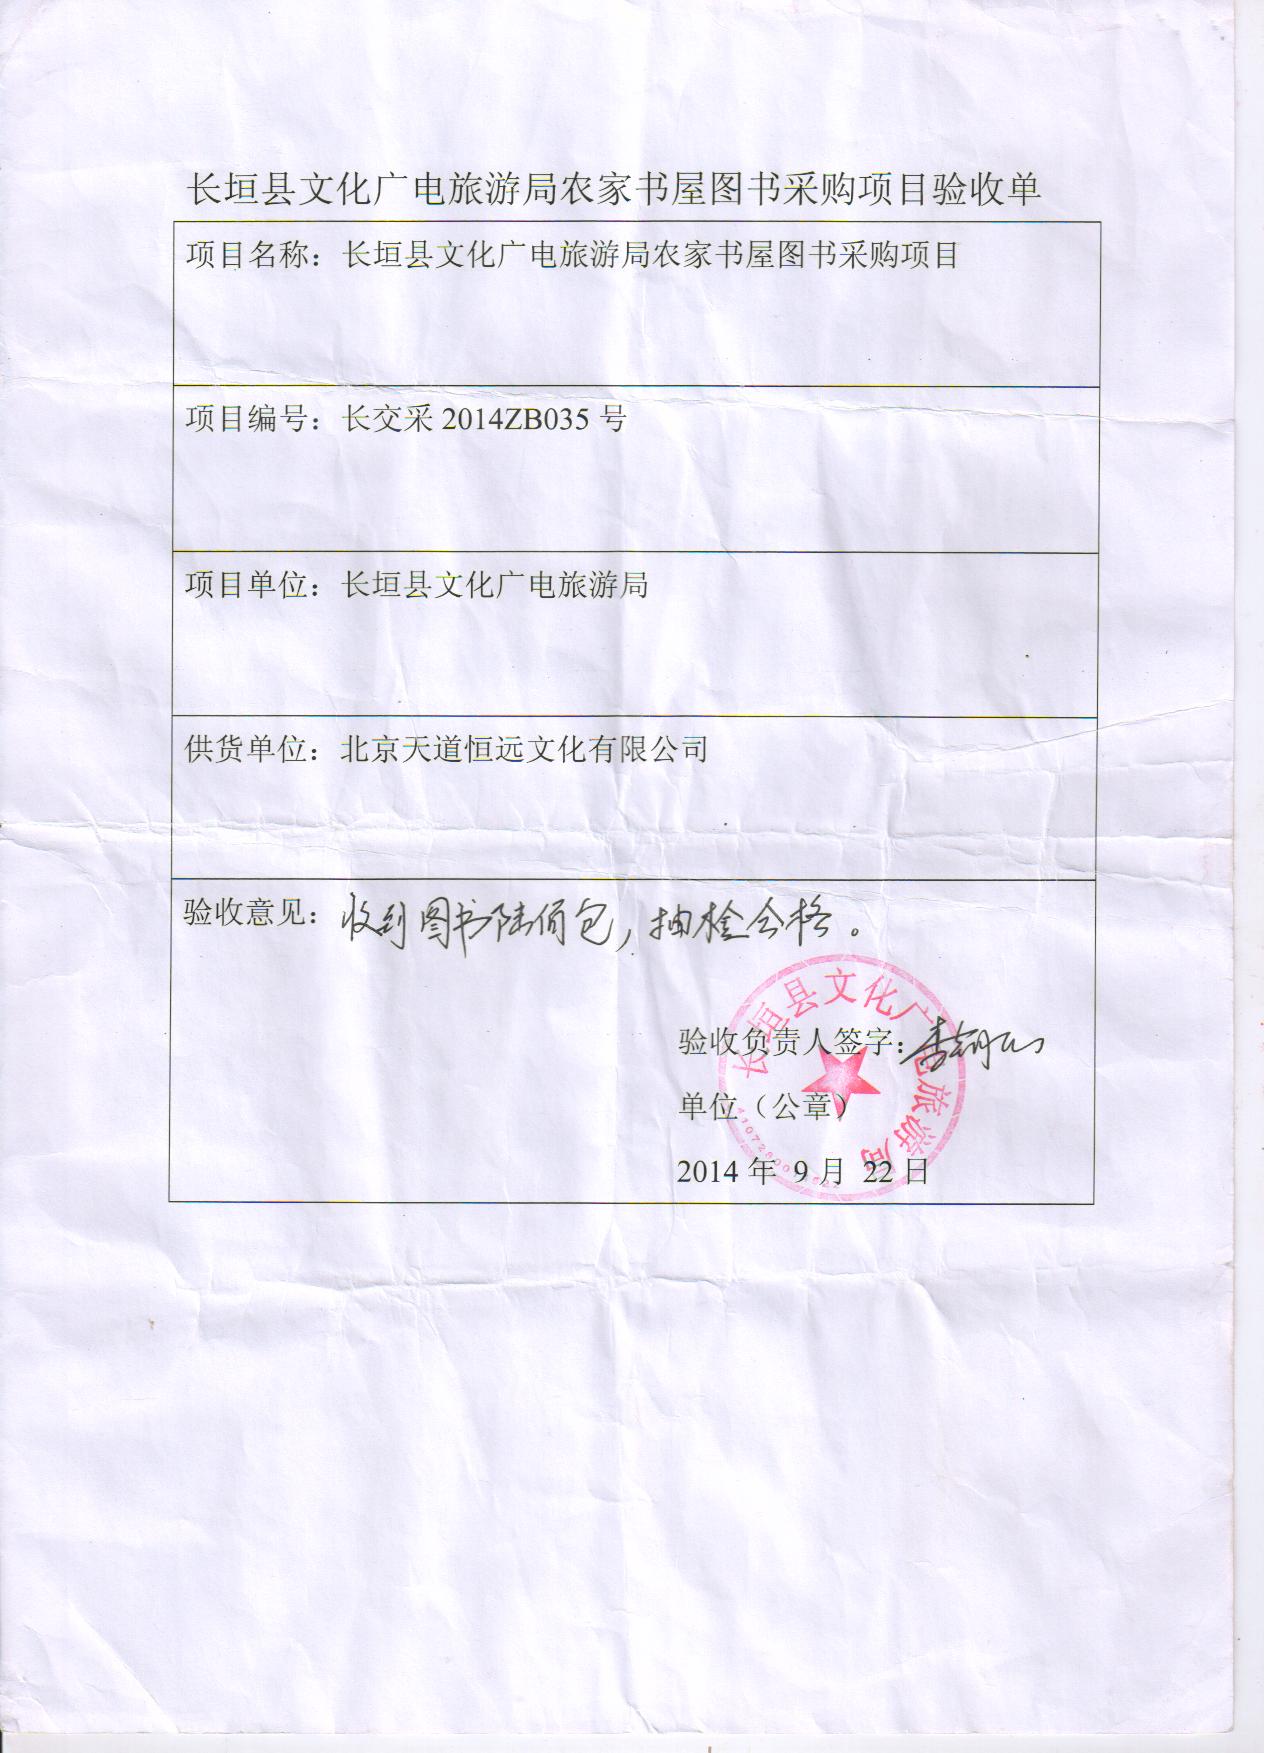 长垣县文化广电旅游局农家书屋图书采购项目验收单
项目名称：长垣县文化广电旅游局农家书屋图书采购项目
项目编号：长交采 2014ZB035 号
项目单位：长垣县文化广电旅游局
供货单位：北京天道恒远文化有限公司
验收意见：收到图书陆佰包，抽检合格。
长垣县文化广电旅游局
验收负责人签字：
单位（公章）
2014 年 9 月 22 日